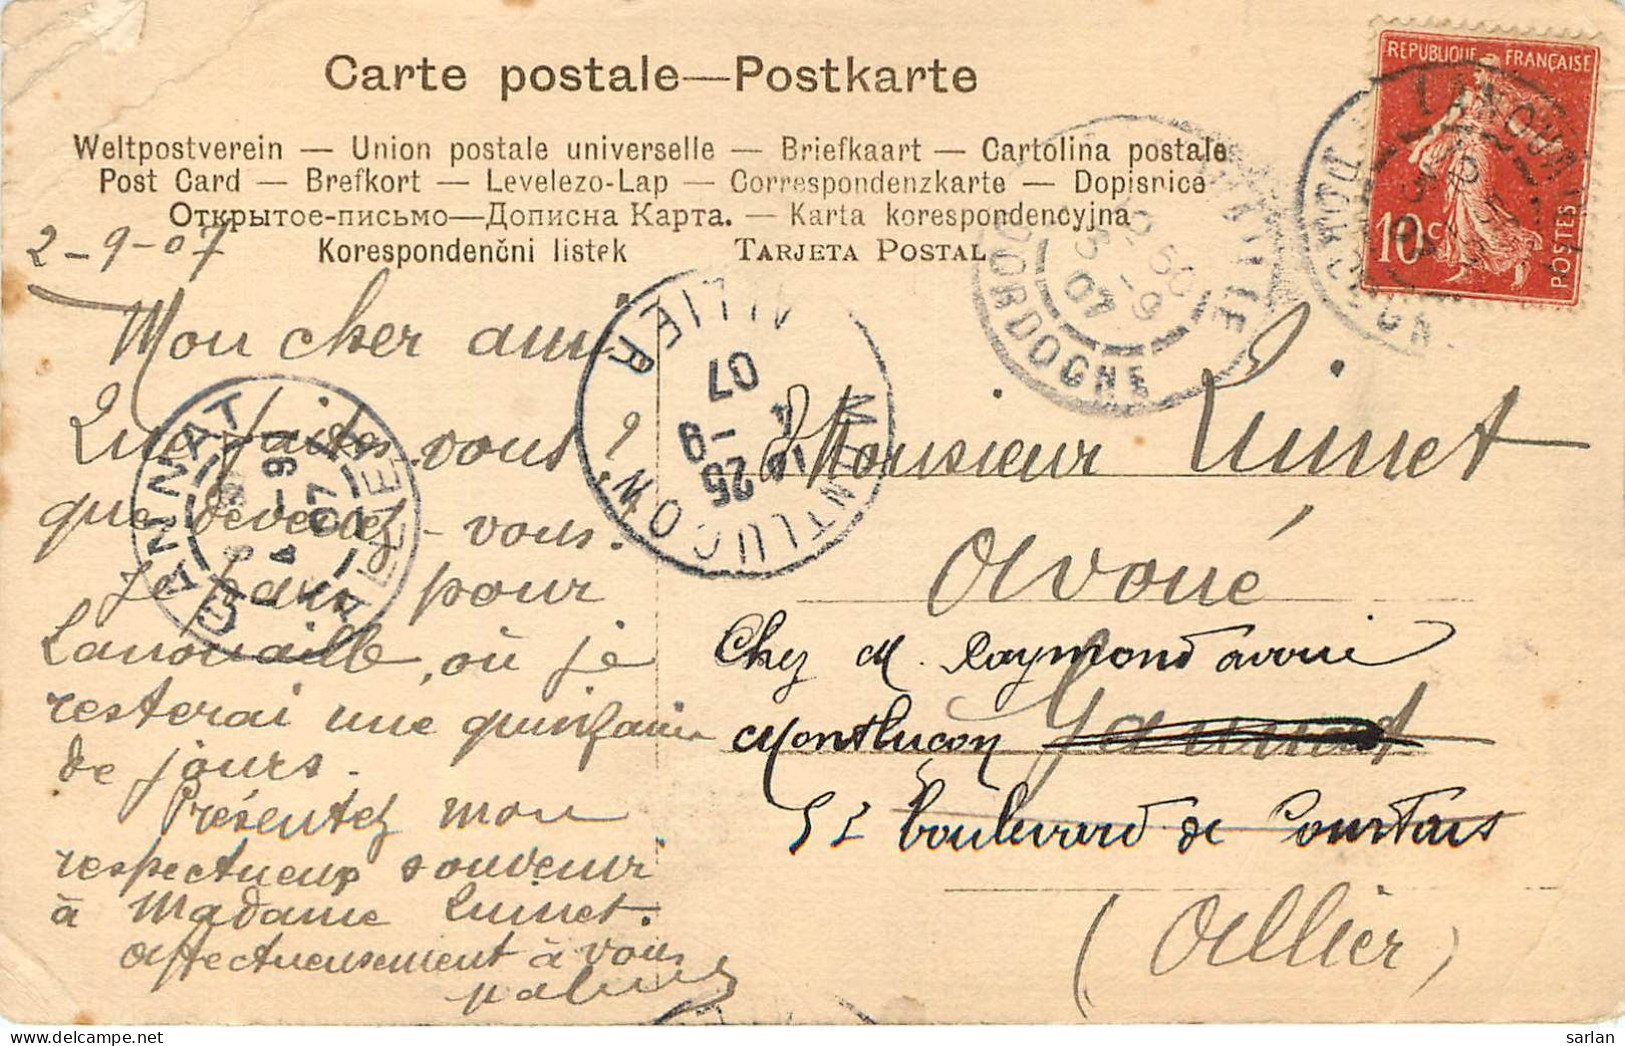 Carte postale—Postkarte
Weltpostverein — Union postale universelle — Briefkaart — Cartolina postale
Post Card — Brefkort — Levelezo-Lap — Correspondenzkarte — Dopisnice
Открытое-письмо—Дописна Карта. — Karta korespondencyjna
Korespondenčni listek TARJETA POSTAL
REPUBLIQUE FRANÇAISE
10 c
POSTES
DORDOGNE
07
MONTLUÇON
ALLIER
25
-9
07
GANNAT
ALLIER
4 -9
07
2-9-07
Mon cher ami
Que faites-vous?
que devenez-vous.
Je pars pour
Lanouaille, où je
resterai une quinzaine
de jours.
Présentez mon
respectueux souvenir
à Madame Quinet.
affectueusement à vous
Monsieur Quinet
avoué
Chez M. Raymond avoué
Montluçon Gannat
52 boulevard de Courtais
(Allier)
sarlan